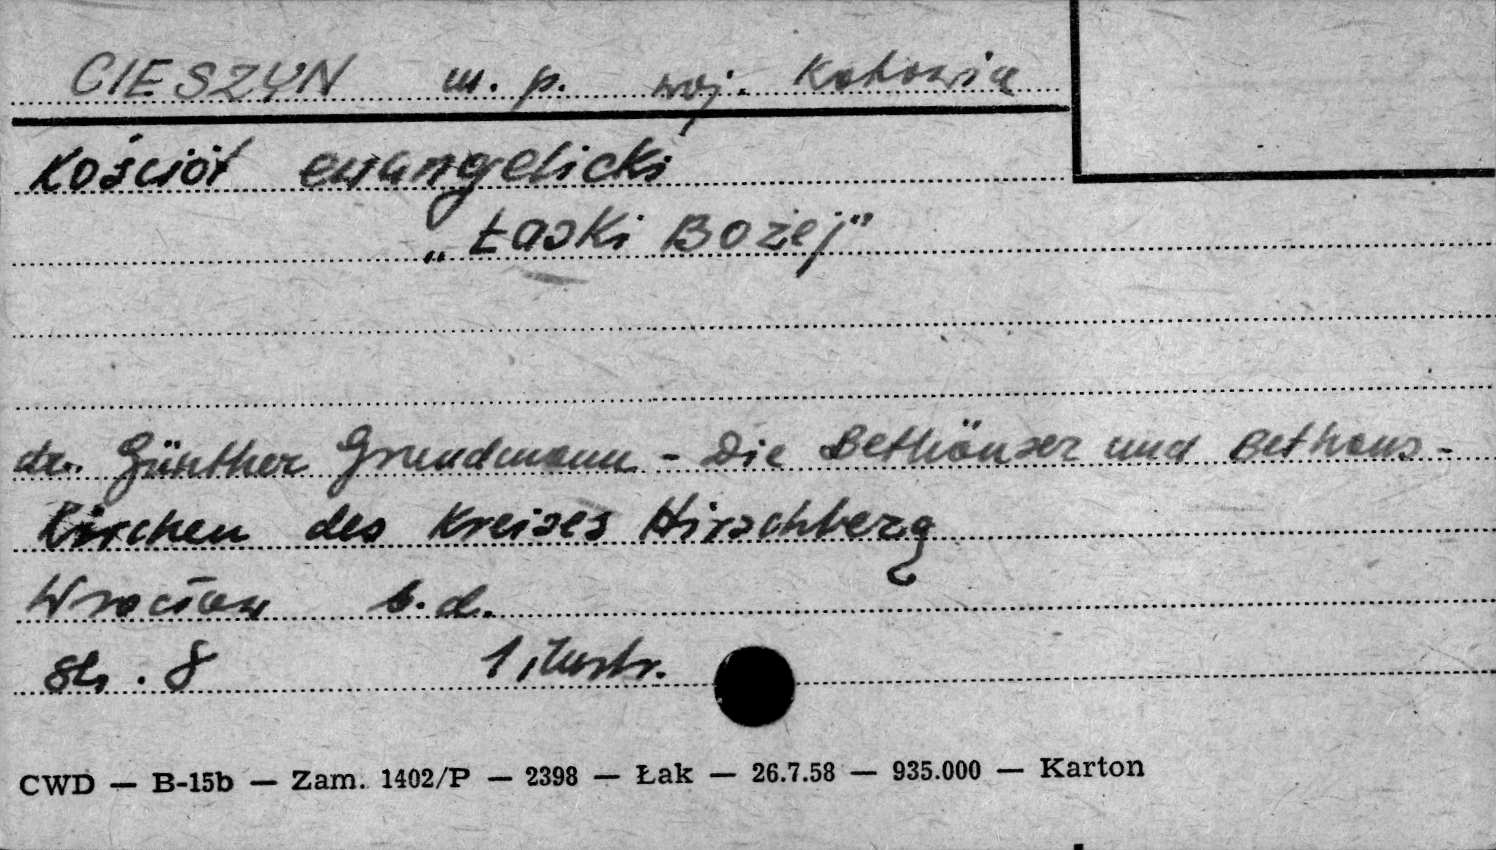 CIESZYN m. p. woj. Katowice
Kościół ewangelicki
„Łaski Bożej"
dr. Günther Grundmann - Die Bethäuser und Bethaus-
kirchen des Kreises Hirschberg
Wrocław b.d.
str. 8 1 ilustr.
CWD — B-15b — Zam. 1402/P — 2398 — Łak — 26.7.58 — 935.000 — Karton